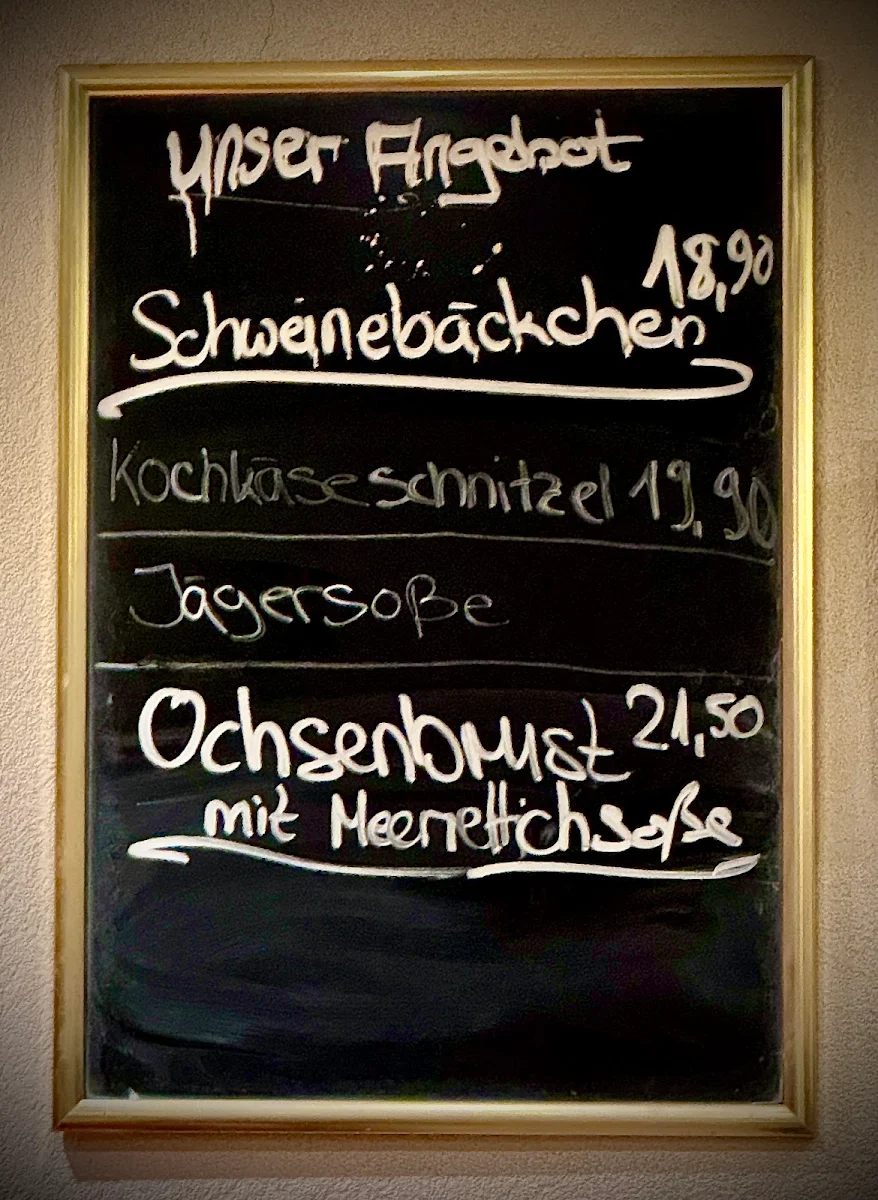 Unser Angebot
18,90
Schweinebäckchen
Kochkäseschnitzel 19,90
Jägersoße
Ochsenbrust 21,50
mit Meerrettichsoße